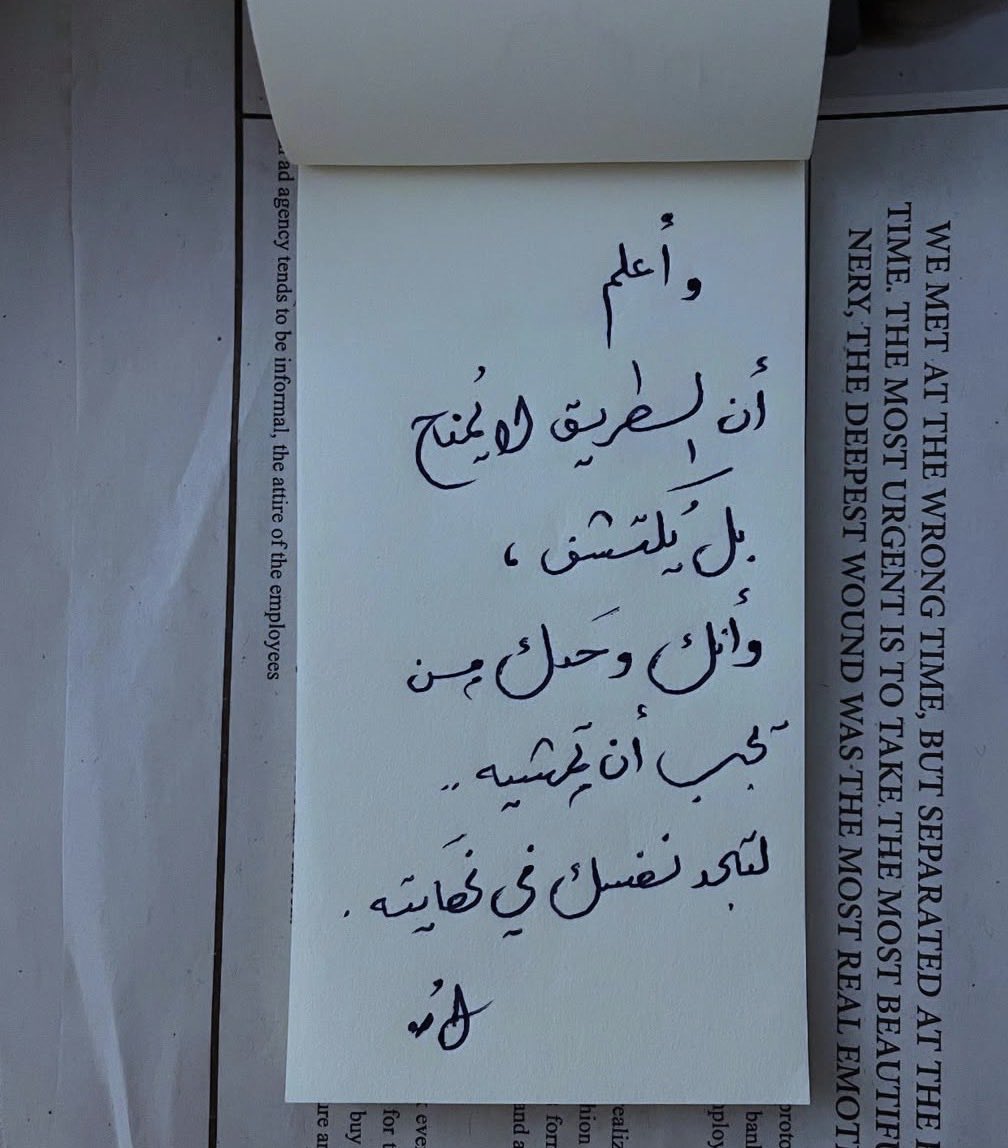 وأعلم
أن الطريق لا يُمنح
بل يُكتشف ،
وأنك وحدك من
يجب أن تمشيه ..
لتجد نفسك في نهايته .
WE MET AT THE WRONG TIME, BUT SEPARATED AT THE
TIME. THE MOST URGENT IS TO TAKE THE MOST BEAUTIF
NERY, THE DEEPEST WOUND WAS THE MOST REAL EMOT
ad agency tends to be informal, the attire of the employees